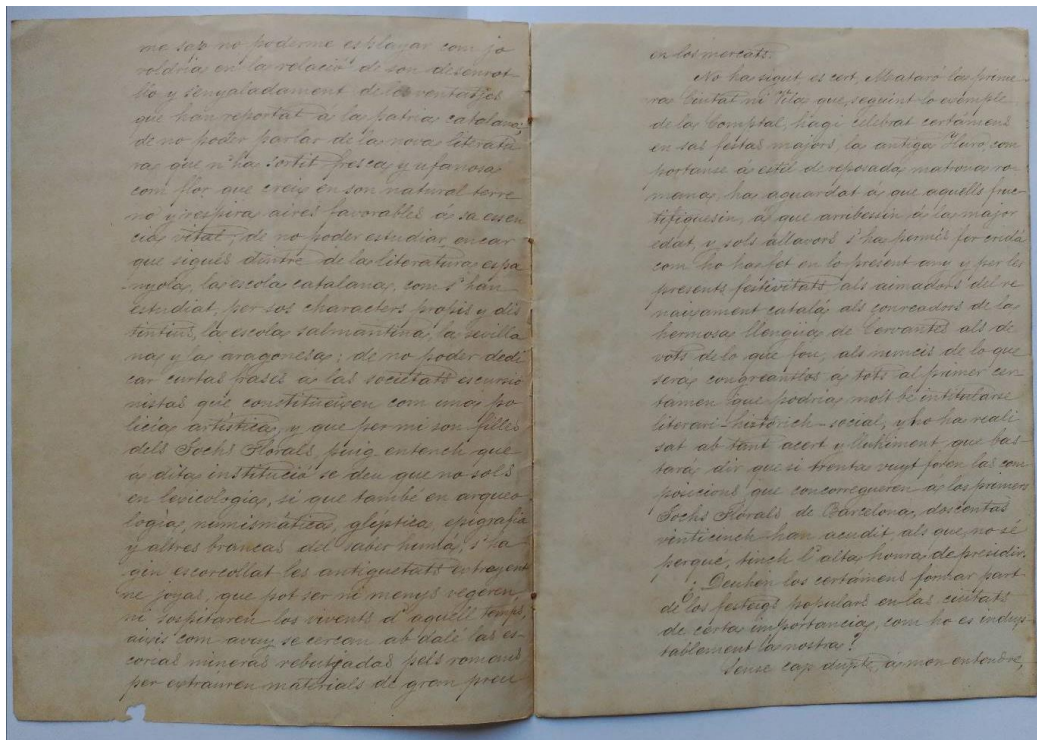 me sap no poderme esplayar com jo
voldria en la relació de son desenrot-
llo y senyaladament de los ventatjes
que hán reportat á la patria catalana;
de no poder parlar de la nova literatu
ra que n'ha sortit fresca y ufanosa
com flor que creix en son natural terre
no y respira aires favorables á sa essen
cia vital; de no poder estudiar, encar
que sigués dintre de la literatura espa
nyola, la escola catalana, com s'hán
estudiat, per sos characters propis y dis
tintius, la escola salmantina, la sevilla
na y la aragonesa; de no poder dedi
car curtas frases a las societats escursio
nistas que constitueixen com una po
licía artística, y que per mi son fillas
dels Jochs Florals, puig entench que
á dita institució se deu que no sols
en lexicologia, si que també en arqueo
logia, numismática, glíptica, epigrafía
y altres brancas del saber humá, s'ha
gin escorcollat les antiguetats extrayent
ne joyas, que pot ser ni menys vegeren,
ni sospitaren los vivents d'aquell temps,
aixis com avuy se cercan ab dalé las es-
corias mineras rebutjadas pels romans
per extrauren materials de gran preu
en los mercats.
No ha sigut, es cert, Mataró la prime
ra Ciutat ni Vila que, seguint lo exémple
de la Comptal, hagi celebrat certámens
en sas festas majors, la antiga Iluro, com
portanse á estil de reposada matrona ro
mana, ha aguardat á que aquells fruc
tifiquesin, á que arribessin á la major
edat, y sols allavors s'ha permés fer crida
com ho ha fet en lo present any y per les
presents festivitats, als aimadors del re
naixament catalá als conreadors de la
hermosa llengüa de Cervantes als de
vots de lo que fou, als nuncis de lo que
será, congreantlos á tots al primer cer
tamen que podria molt bé intitularse
literari-historich-social, y ho ha reali
sat ab tant acert y lluhiment que bas
tará dir que si trenta vuyt foren las com
posicions que concorregueren á los primers
Jochs Florals de Barcelona, doscentas
vinticinch han acudit als que, no sé
perqué, tinch l'alta honra de presidir.
¿Deuhen los certámens formar part
de los festeigs populars en las ciutats
de certa importancia, com ho es indup-
tablement la nostra?
Sense cap dupte, á mon entendre,